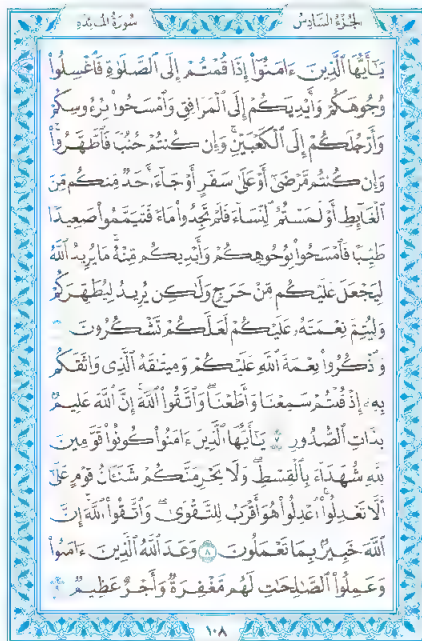 الجزء السادس
سورة المائدة
يَٰٓأَيُّهَا ٱلَّذِينَ ءَامَنُوٓا۟ إِذَا قُمْتُمْ إِلَى ٱلصَّلَوٰةِ فَٱغْسِلُوا۟
وُجُوهَكُمْ وَأَيْدِيَكُمْ إِلَى ٱلْمَرَافِقِ وَٱمْسَحُوا۟ بِرُءُوسِكُمْ
وَأَرْجُلَكُمْ إِلَى ٱلْكَعْبَيْنِ ۚ وَإِن كُنتُمْ جُنُبًا فَٱطَّهَّرُوا۟ ۚ
وَإِن كُنتُم مَّرْضَىٰٓ أَوْ عَلَىٰ سَفَرٍ أَوْ جَآءَ أَحَدٌ مِّنكُم مِّنَ
ٱلْغَآئِطِ أَوْ لَٰمَسْتُمُ ٱلنِّسَآءَ فَلَمْ تَجِدُوا۟ مَآءً فَتَيَمَّمُوا۟ صَعِيدًا
طَيِّبًا فَٱمْسَحُوا۟ بِوُجُوهِكُمْ وَأَيْدِيكُم مِّنْهُ ۚ مَا يُرِيدُ ٱللَّهُ
لِيَجْعَلَ عَلَيْكُم مِّنْ حَرَجٍ وَلَٰكِن يُرِيدُ لِيُطَهِّرَكُمْ
وَلِيُتِمَّ نِعْمَتَهُۥ عَلَيْكُمْ لَعَلَّكُمْ تَشْكُرُونَ
وَٱذْكُرُوا۟ نِعْمَةَ ٱللَّهِ عَلَيْكُمْ وَمِيثَٰقَهُ ٱلَّذِى وَاثَقَكُم
بِهِۦٓ إِذْ قُلْتُمْ سَمِعْنَا وَأَطَعْنَا ۖ وَٱتَّقُوا۟ ٱللَّهَ ۚ إِنَّ ٱللَّهَ عَلِيمٌۢ
بِذَاتِ ٱلصُّدُورِ ٧ يَٰٓأَيُّهَا ٱلَّذِينَ ءَامَنُوا۟ كُونُوا۟ قَوَّٰمِينَ
لِلَّهِ شُهَدَآءَ بِٱلْقِسْطِ ۖ وَلَا يَجْرِمَنَّكُمْ شَنَـَٔانُ قَوْمٍ عَلَىٰٓ
أَلَّا تَعْدِلُوا۟ ۚ ٱعْدِلُوا۟ هُوَ أَقْرَبُ لِلتَّقْوَىٰ ۖ وَٱتَّقُوا۟ ٱللَّهَ ۚ إِنَّ
ٱللَّهَ خَبِيرٌۢ بِمَا تَعْمَلُونَ ٨ وَعَدَ ٱللَّهُ ٱلَّذِينَ ءَامَنُوا۟
وَعَمِلُوا۟ ٱلصَّٰلِحَٰتِ ۙ لَهُم مَّغْفِرَةٌ وَأَجْرٌ عَظِيمٌ
١٠٨